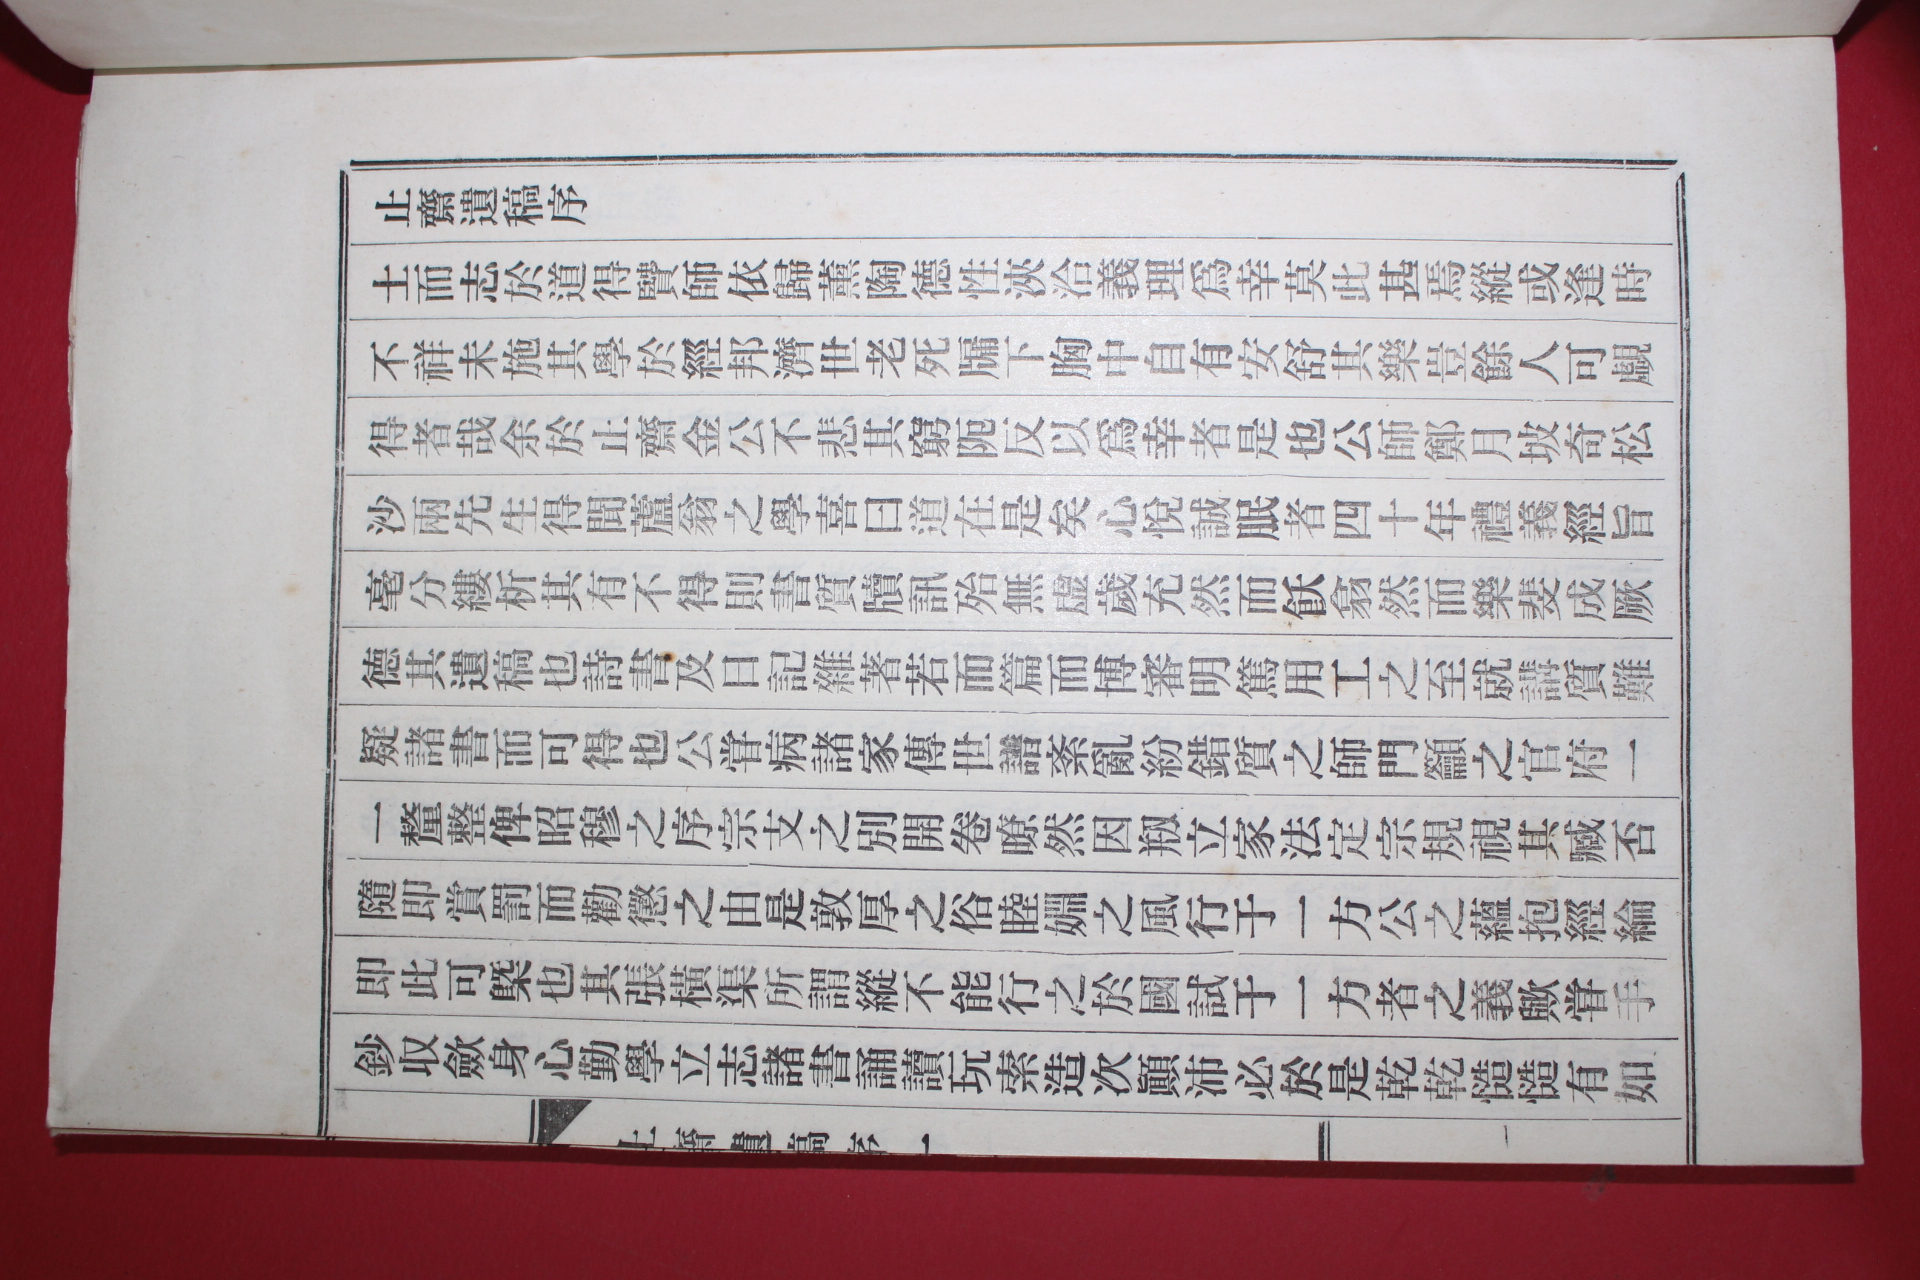 止齋遺稿序
士而志於道得賢師依歸薰陶德性浹洽義理爲幸莫此甚焉縱或逢時
不祥未施其學於經邦濟世老死牖下胸中自有安舒其樂豈餘人可覷
得者哉余於止齋金公不悲其窮阨反以爲幸者是也公師鄭月坡奇松
沙兩先生得聞蘆翁之學喜曰道在是矣心悅誠眠者四十年禮義經旨
毫分縷析其有不得則書質牘訊殆無虛歲充然而飫翕然而樂斐成厥
德其遺稿也詩書及日記雜著若而篇而博審明篤用工之至就講質難
疑諸書而可得也公甞病諸家傳世譜紊亂紛錯質之師門籲之官府一
一釐整俾昭穆之序宗支之別開卷暸然因剏立家法定宗規視其臧否
隨即賞罰而勸懲之由是敦厚之俗睦婣之風行于一方公之蘊抱經綸
即此可槩也其張橫渠所謂縱不能行之於國試于一方者之義歟甞手
鈔収斂身心勤學立志諸書誦讀玩索造次顚沛必於是乾乾慥慥有如
止齋遺稿序 一